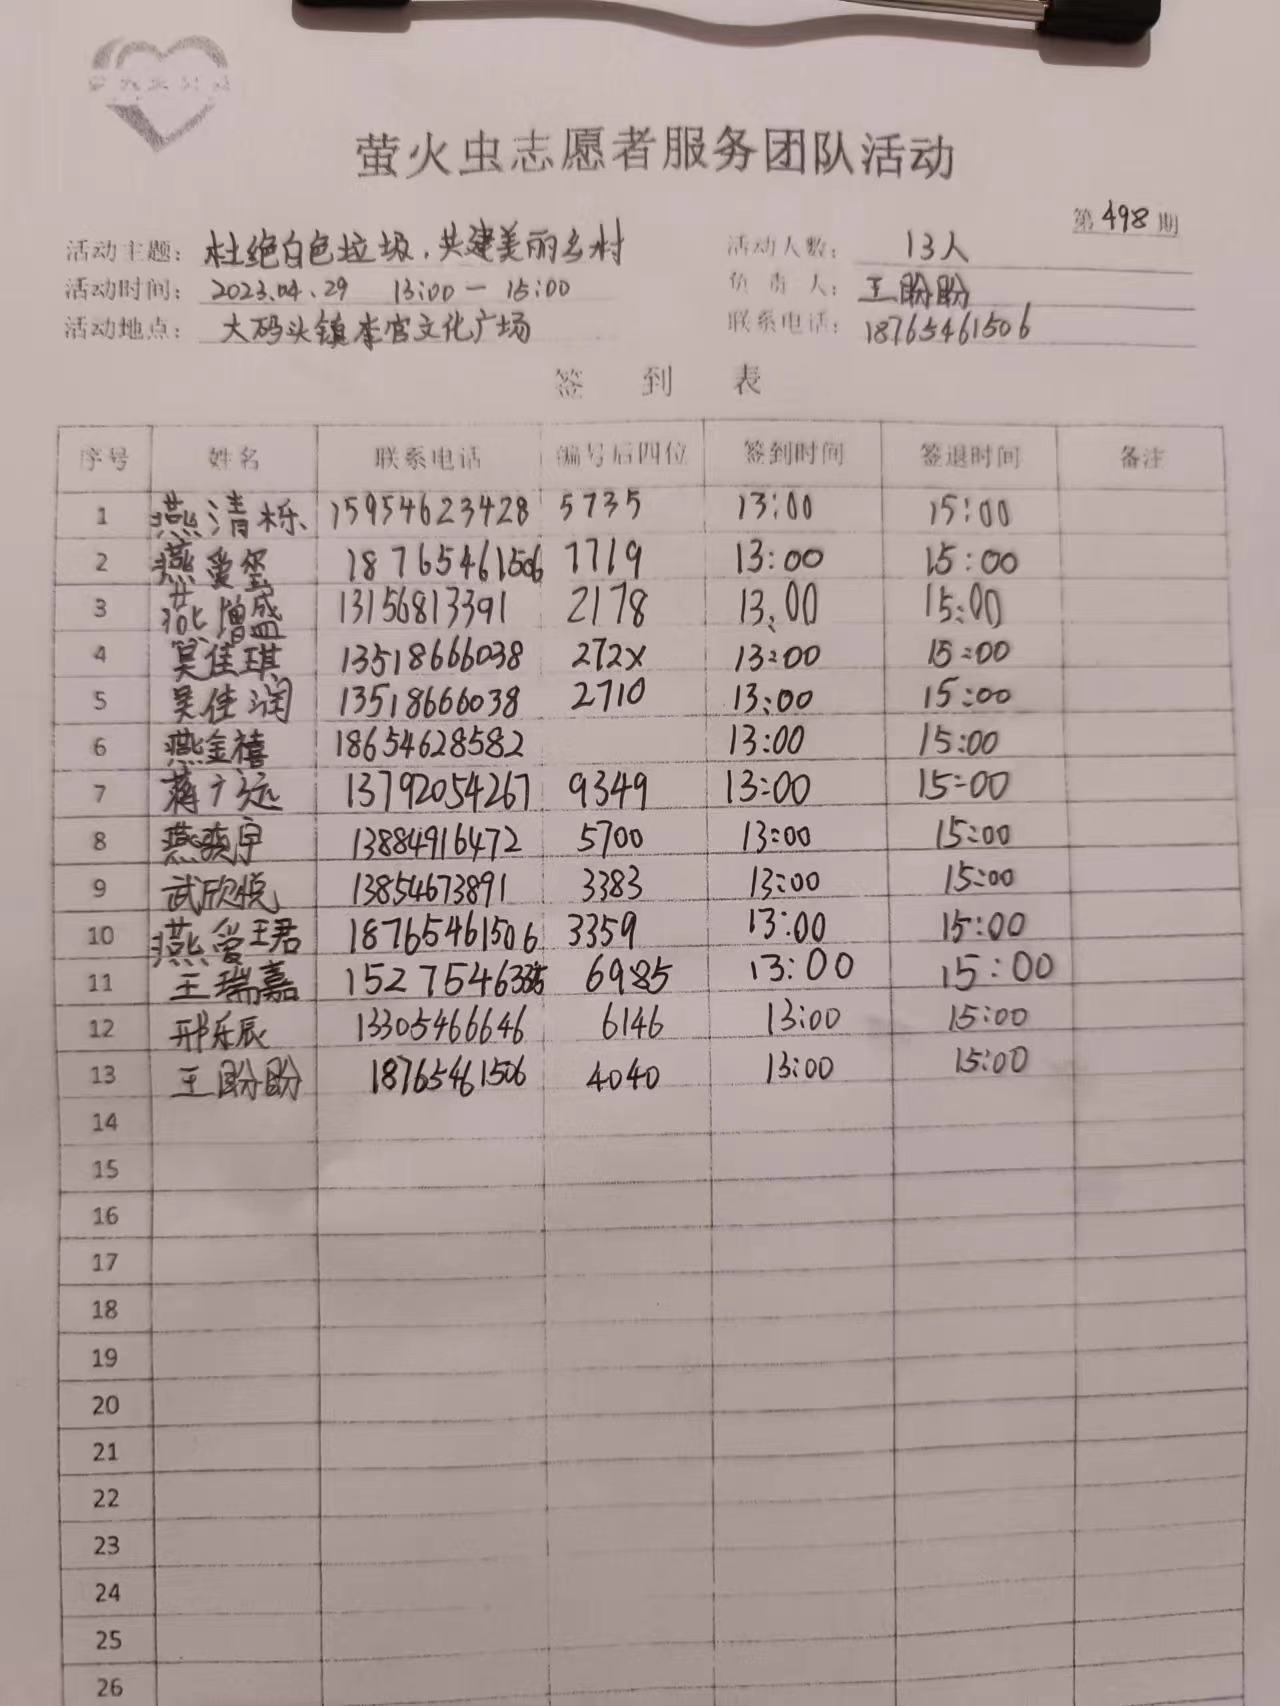 萤火虫志愿者服务团队活动
第 498 期
活动主题: 杜绝白色垃圾.共建美丽乡村 活动人数: 13人
活动时间: 2023.04.29 13:00 — 15:00 负责人: 王盼盼
活动地点: 大码头镇李官文化广场 联系电话: 18765461506
签 到 表
序号 姓名 联系电话 编号后四位 签到时间 签退时间 备注
1 燕清栎 15954623428 5735 13:00 15:00
2 燕爱玺 18765461506 7719 13:00 15:00
3 增盛 13156813391 2178 13:00 15:00
4 吴佳琪 13518666038 272X 13:00 15:00
5 吴佳润 13518666038 2710 13:00 15:00
6 燕金禧 18654628582 13:00 15:00
7 蒋广远 13792054267 9349 13:00 15:00
8 燕奕宇 13884916472 5700 13:00 15:00
9 武欣悦 13854673891 3383 13:00 15:00
10 燕爱珺 18765461506 3359 13:00 15:00
11 王瑞嘉 6985 13:00 15:00
12 邢乐辰 13305466646 6146 13:00 15:00
13 王盼盼 18765461506 4040 13:00 15:00
14
15
16
17
18
19
20
21
22
23
24
25
26